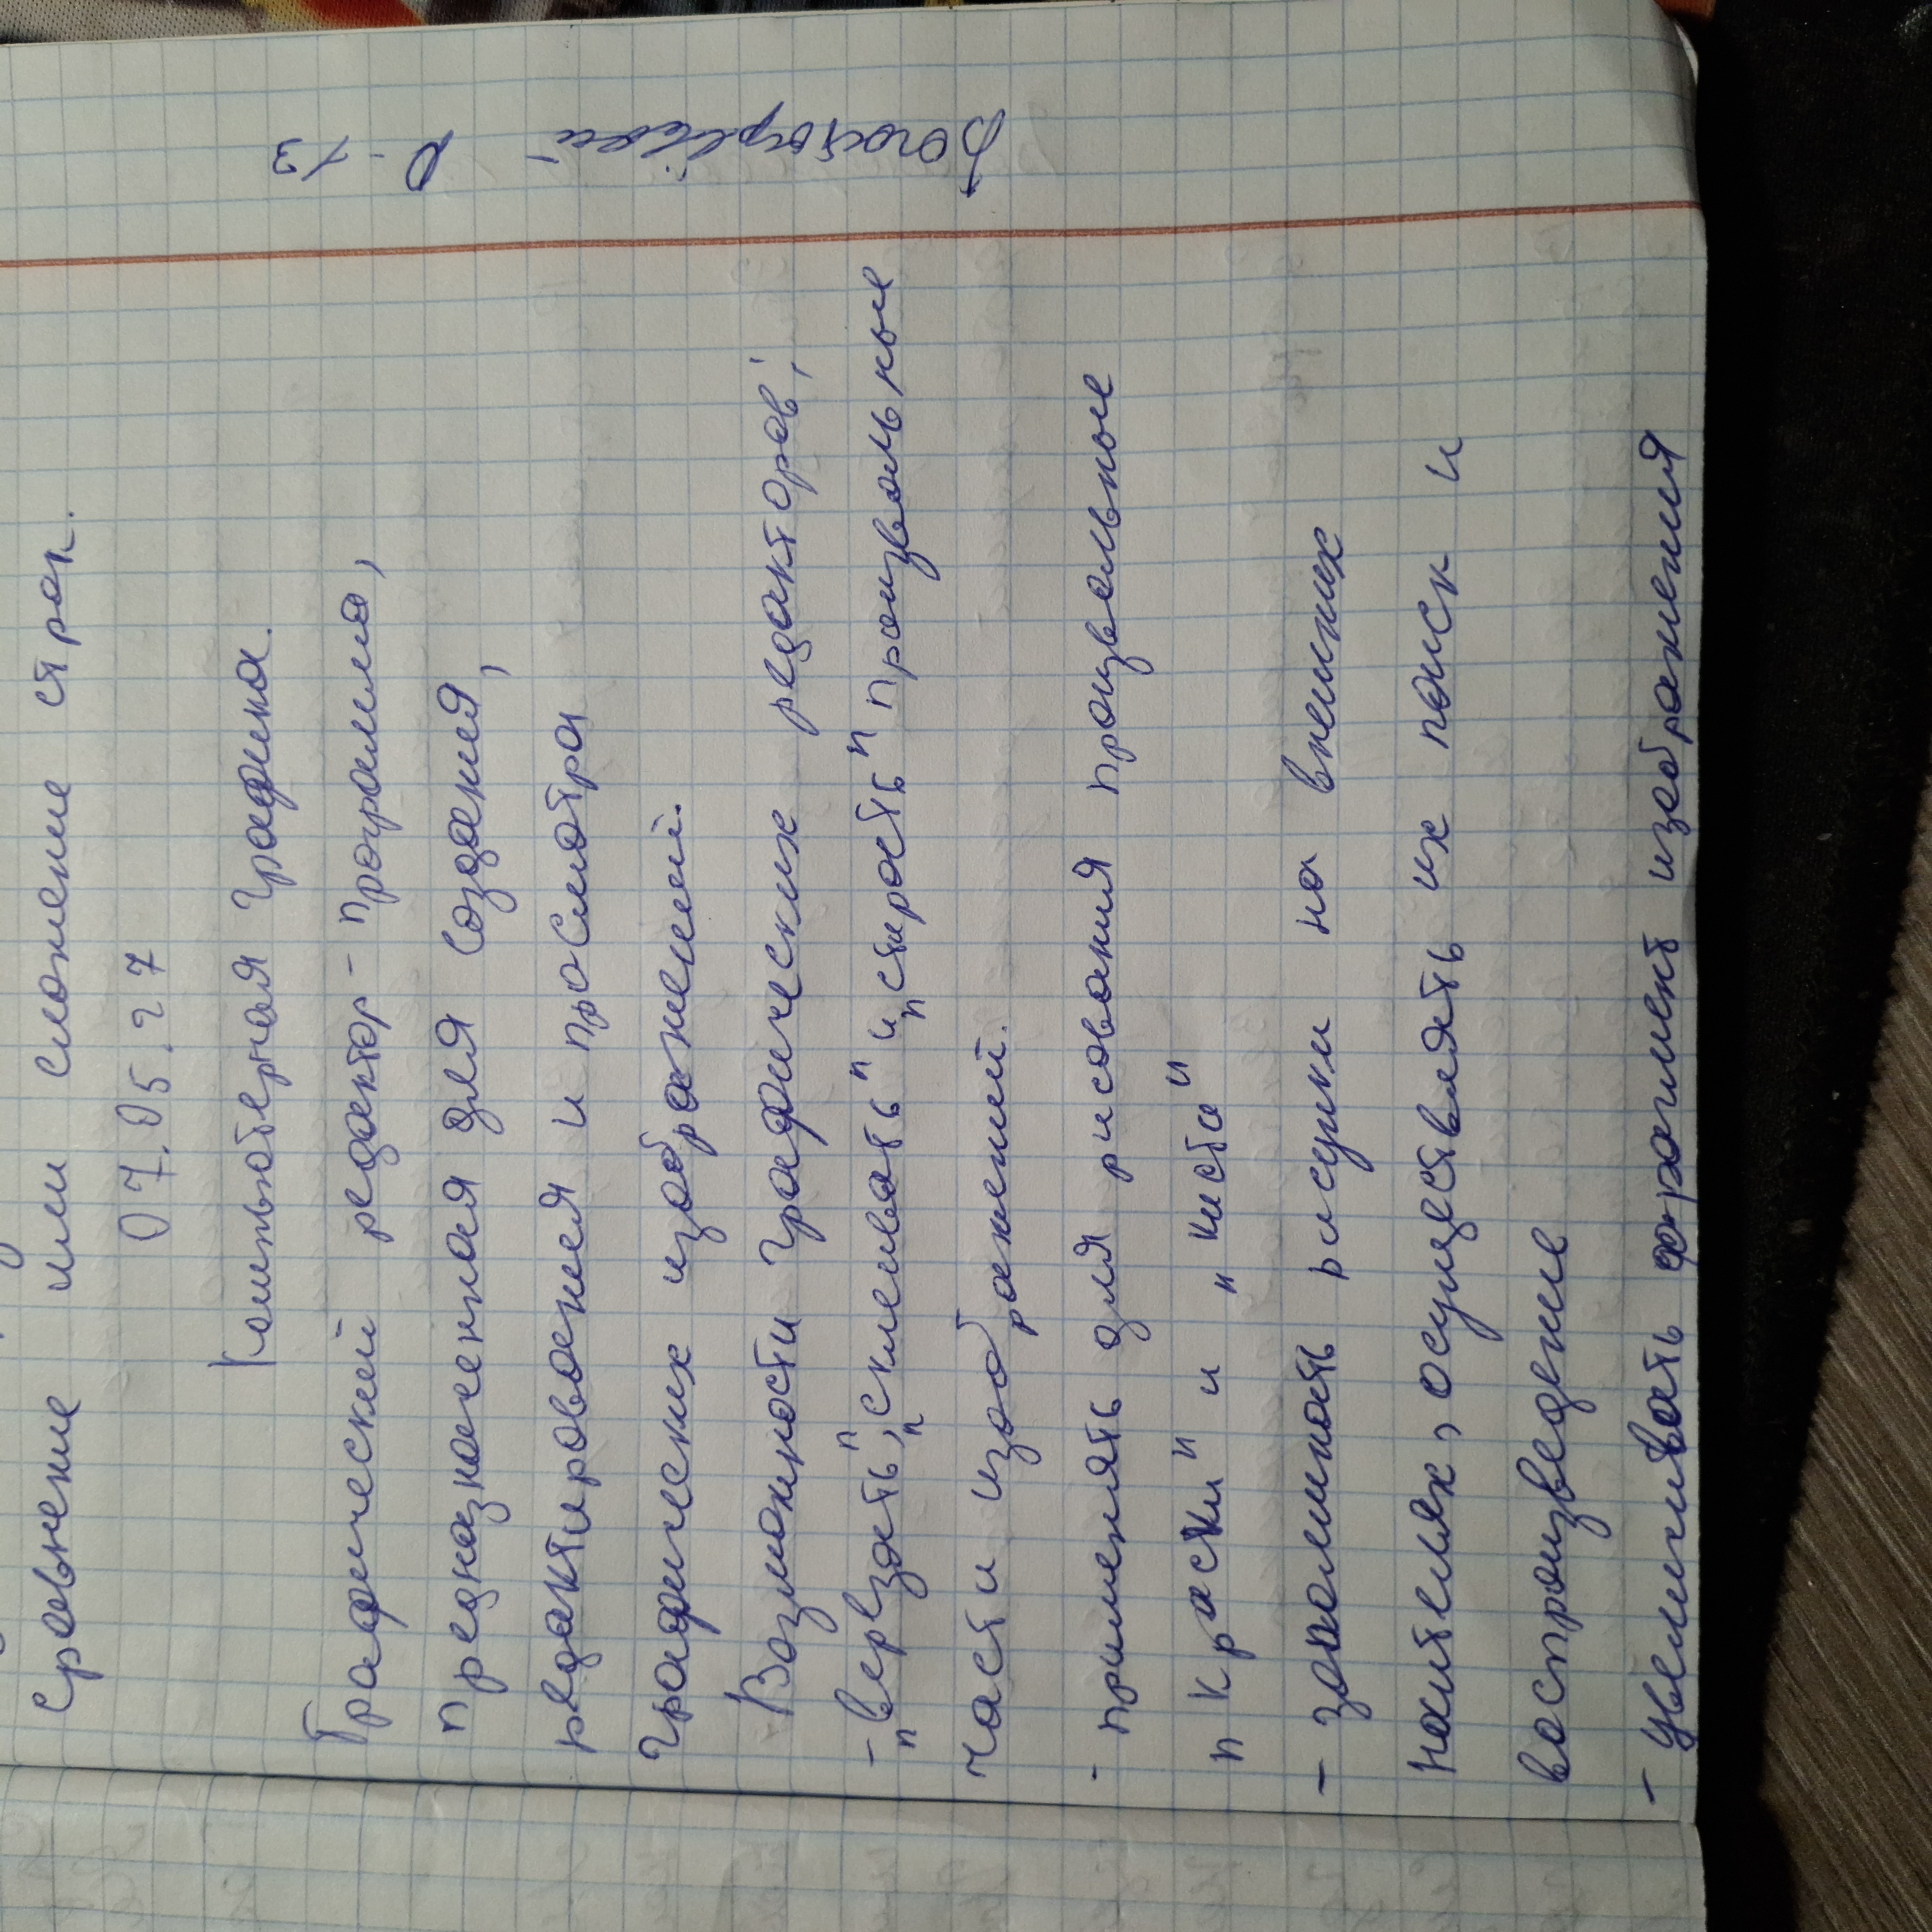 Сравнение или сложение строк.
07.05.27
Компьютерная графика.
Графический редактор - программа,
предназначенная для создания,
редактирования и просмотра
графических изображений.
Возможности графических редакторов:
- "вервзать", "склеивать" и "стирать" произвольные
части изображений.
- применять для рисования произвольные
"краски" и "кисти"
- запоминать рисунки на внешних
носителях, осуществлять их поиск и
воспроизведение
- увеличивать фрагмент изображения